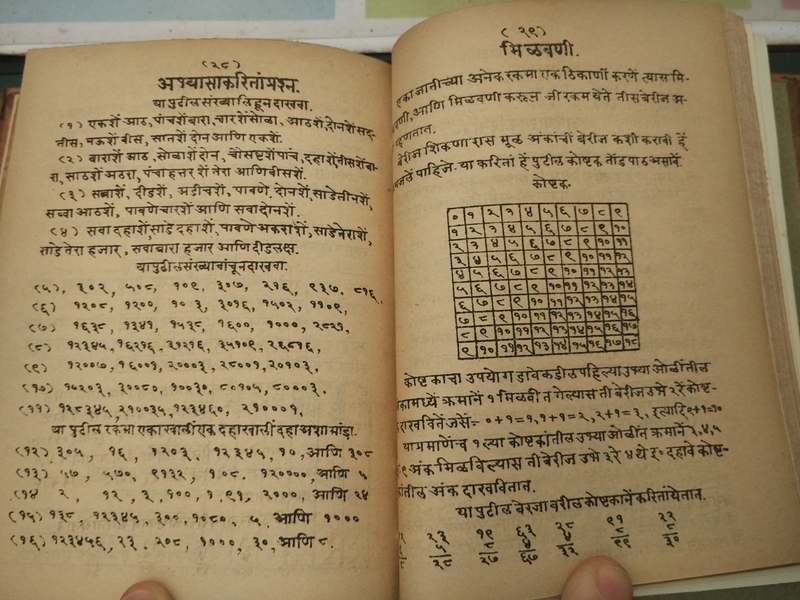 (२८)
अभ्यासाकरितां प्रश्न.
या पुढील संख्या लिहून दाखवा.
(१) एकशें आठ, पांचशें बारा, चारशें सोळा, आठशें, दोनशें सद-
तीस, नऊशें वीस, सातशें दोन आणि एकशें.
(२) बाराशें आठ, सोळाशें दोन, चौसष्टशें पांच, दहाशें, वीसशें बा-
रा, साठशें अठरा, पंचाहत्तरशें तेरा आणि वीसशें.
(३) सव्वाशें, दीडशें, अडीचशें, पावणे दोनशें, साडेतीनशें,
सव्वा आठशें, पावणेचारशें आणि सवादोनशें.
(४) सवा दहाशें, साडे दहाशें, पावणे अकराशें, साडेतेराशें,
साडे तेरा हजार, सवाबारा हजार आणि दीडलक्ष.
या पुढील संख्या वांचून दाखवा.
(५), ३०२, ५०८, १०९, ३०७, २१६, ९३७, ८१६,
(६) १२०८, १२००, १०३, ३०१६, १५०२, ११०९,
(७) १६३८, १३४१, १५३८, १६००, १०००, २८२१,
(८) १२३४५, १६२१६, ३१२१६, ३५१०९, २६८१६,
(९) १२००७, १६००१, २०००३, २८००१, २०१०३,
(१०) १५२०३, ३००८०, १००३०, ८०१०५, ८०००३,
(११) १२८३४५, २१००३५, १२३४६०, २१०००१,
या पुढील रकमा एका खालीं एक दहा खालीं दहा अशा मांडा.
(१२) ३०५, १६, १२०३, १२३४५, १०, आणि ३०८
(१३) ५७, ५७०, ९१३२, १०८, १२००००, आणि ५
(१४ २, १२, ३, १००, १, ९१, २०००, आणि २४
(१५) १३८, १२३४५, ३००, १०८०, ५ आणि १०००
(१६) १२३४५६, २३, २०८, १०००, ३०, आणि ८.
(२९)
मिळवणी.
एका ज्ञातीच्या अनेक रकमा एक ठिकाणीं करणें त्यास मि-
वणी, आणि मिळवणी करून जी रकम येते तीस बेरीज अ-
म्हणतात.
बेरीज शिकणारास मूळ अंकांची बेरीज कशी करावी हें
पाहिजे. या करितां हें पुढील कोष्टक तोंड पाठ असावें.
कोष्टक.
० १ २ ३ ४ ५ ६ ७ ८ ९
१ २ ३ ४ ५ ६ ७ ८ ९ १०
२ ३ ४ ५ ६ ७ ८ ९ १० ११
३ ४ ५ ६ ७ ८ ९ १० ११ १२
४ ५ ६ ७ ८ ९ १० ११ १२ १३
५ ६ ७ ८ ९ १० ११ १२ १३ १४
६ ७ ८ ९ १० ११ १२ १३ १४ १५
७ ८ ९ १० ११ १२ १३ १४ १५ १६
८ ९ १० ११ १२ १३ १४ १५ १६ १७
९ १० ११ १२ १३ १४ १५ १६ १७ १८
कोष्टकाचा उपयोग डावेकडील पहिल्या उभ्या ओळींतील
कामध्यें क्रमानें १ मिळवीत गेल्यास ती बेरीज उभे २रें कोष्ट-
दाखवितें जसें= ०+१=१, १+१=२, २+१=३, इत्यादि ९+१=१०
या प्रमाणेंच १ ल्या कोष्टकांतील उभ्या ओळींत क्रमानें २, ४, ५
९ अंक मिळविल्यास ती बेरीज उभे ३रे ४थे १० दहावे कोष्ट-
कांतील अंक दाखवितात.
या पुढील बेरजा वरील कोष्टकानें करितां येतात.
२३ १९ ६३ २८ ९१ २२
५ ८ ४ ४ ८ ८
२८ २७ ६७ ३२ ९९ ३०